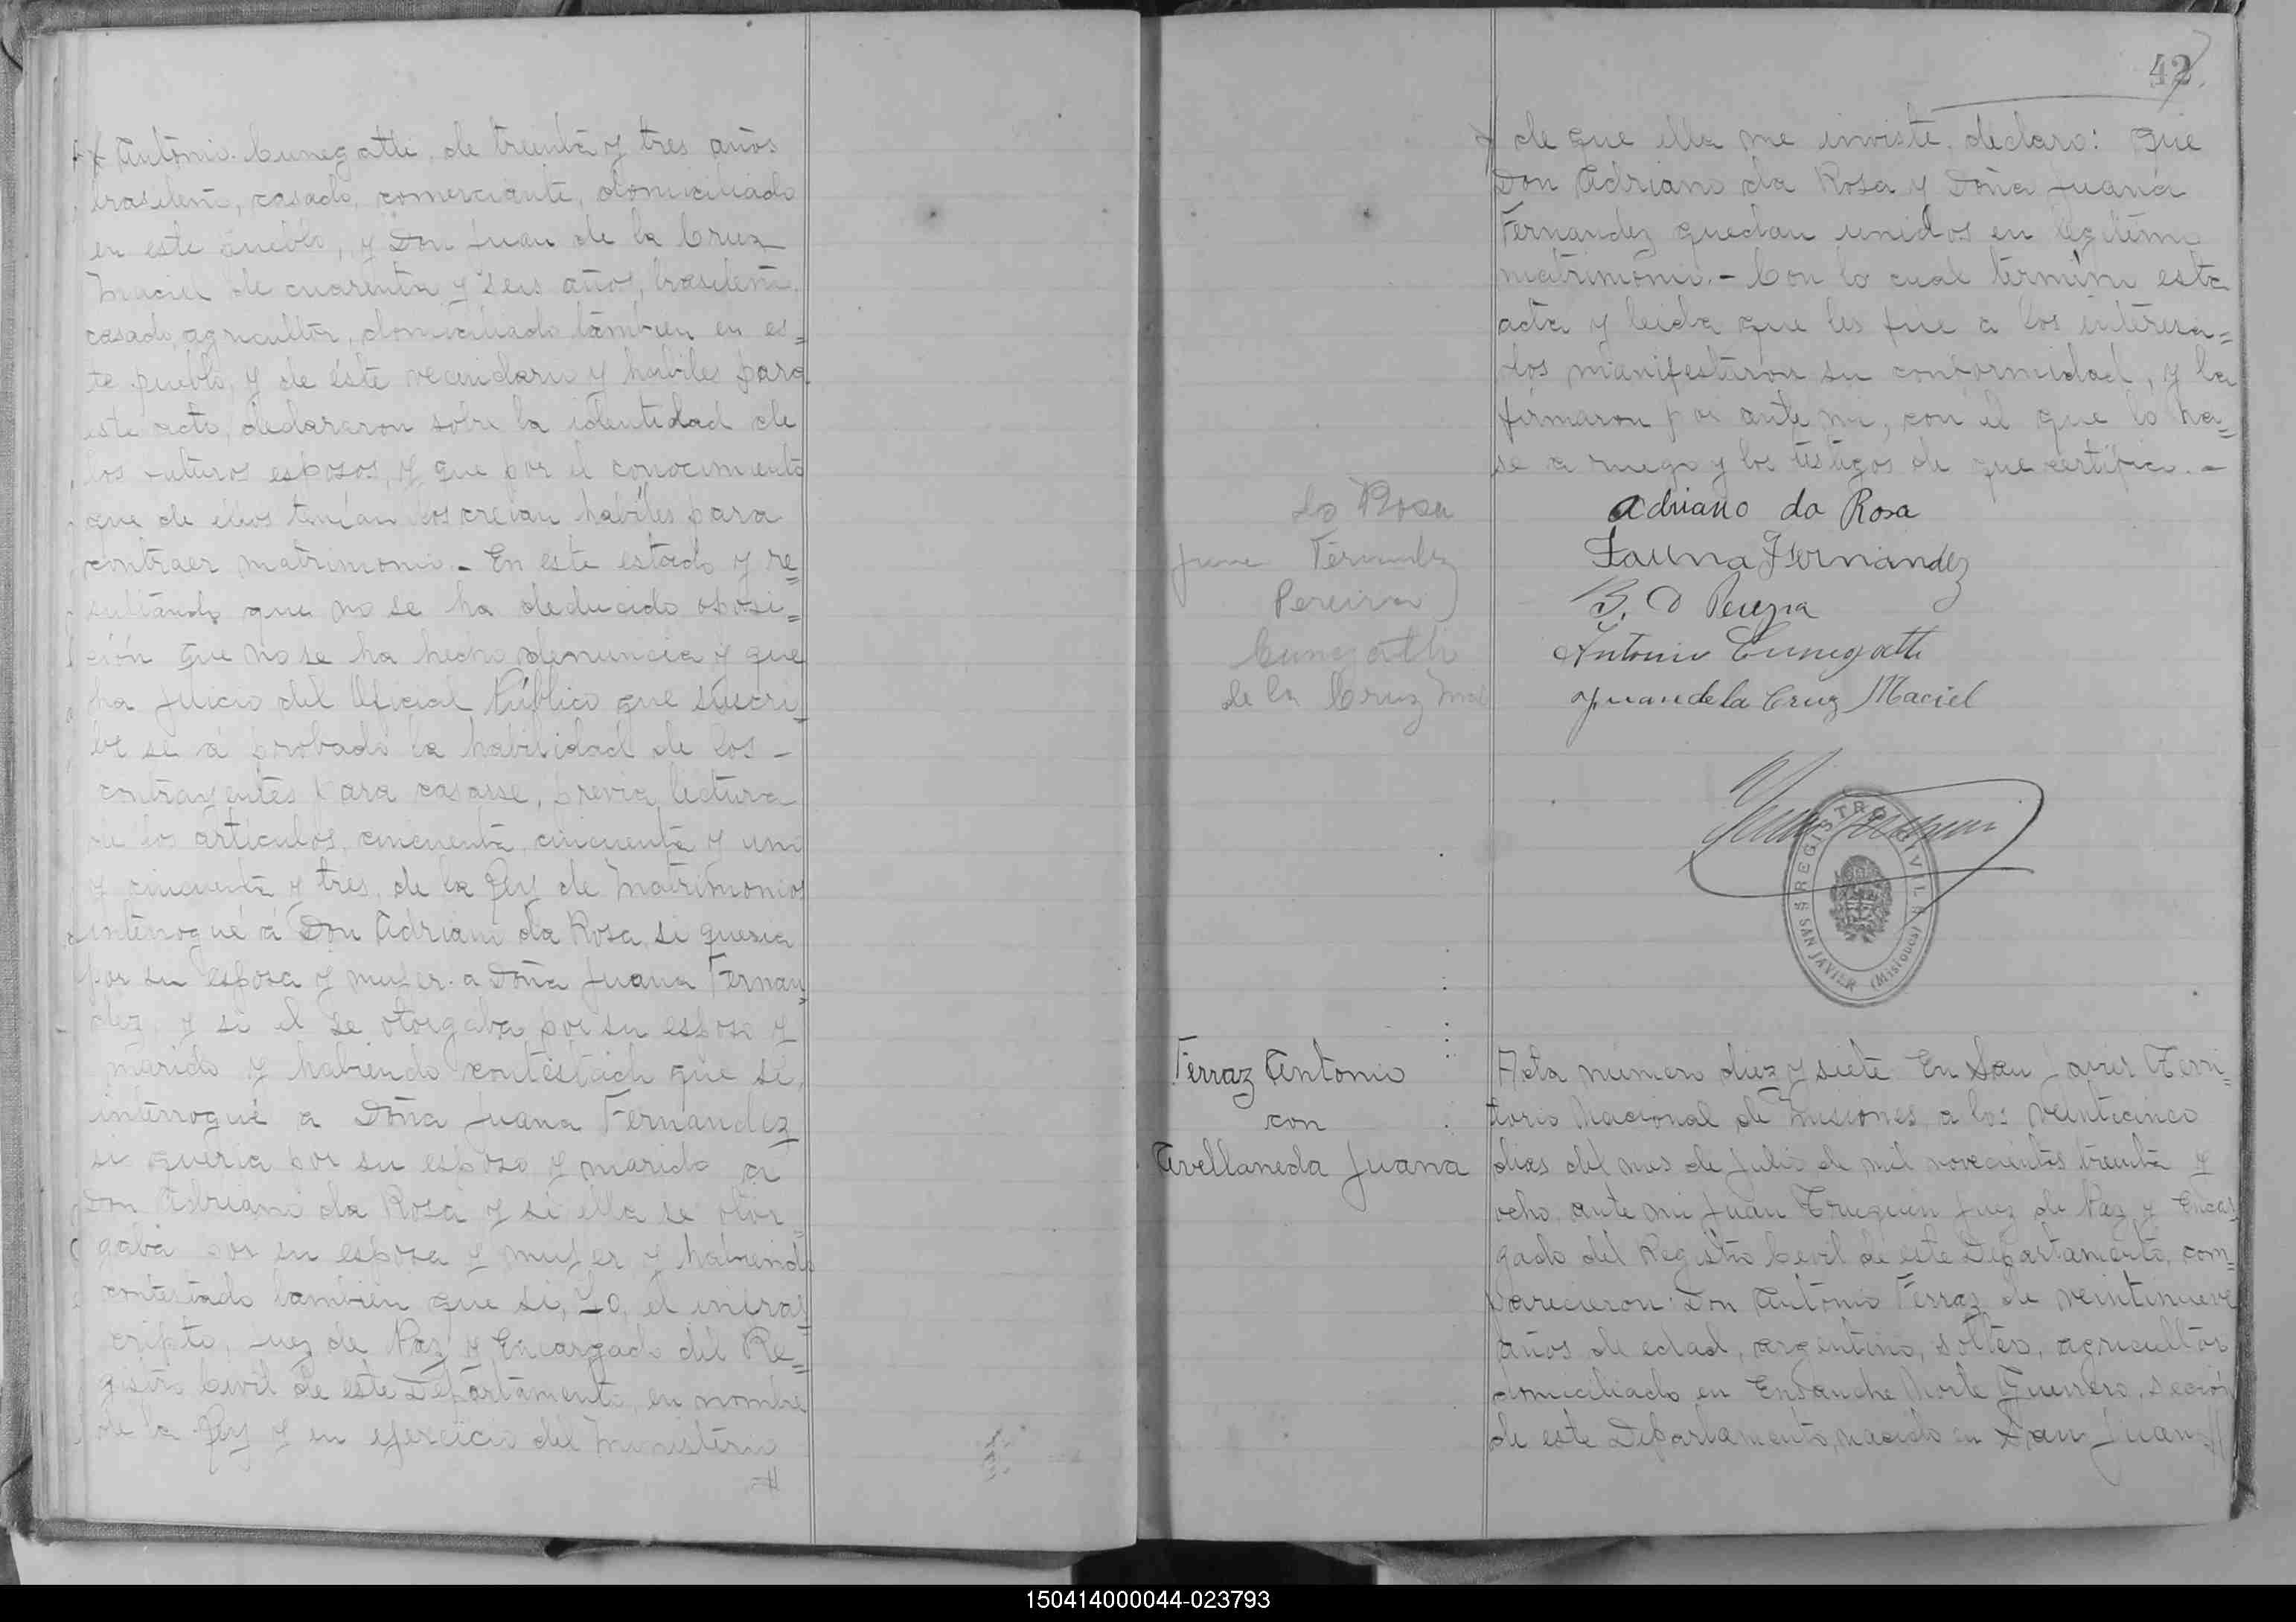 Antonio Cunegatti, de treinta y tres años
brasileño, casado, comerciante, domiciliado
en este pueblo, y Don Juan de la Cruz
Maciel de cuarenta y seis años, brasileño.
casado, agricultor, domiciliado tambien en es=
te pueblo, y de éste vecindario y habiles para
este acto, declararon sobre la identidad de
los futuros esposos, y que por el conocimiento
que de ellos tenían los creían habiles para
contraer matrimonio.- En este estado y re=
sultando que no se ha deducido oposi=
ción que no se ha hecho denuncia y que
ha juicio del Oficial Público que suscri=
be se á probado la habilidad de los -
contrayentes para casarse, previa lectura
de los artículos, cincuenta, cincuenta y uno
y cincuenta y tres, de la Ley de Matrimonios
interrogué á Don Adriano da Rosa, si queria
por su esposa y mujer a Doña Juana Fernan=
dez, y si el se otorgaba por su esposo y
marido y habiendo contestado que si,
interrogué a Doña Juana Fernandez
si queria por su esposo y marido a
Don Adriano da Rosa y si ella se otor=
gaba por su esposa y mujer y habiendo
contestado tambien que si, Yo, el infras=
cripto, Juez de Paz y Encargado del Re=
gistro Civil de este Departamento, en nombre
de la Ley y en ejercicio del Ministerio
#
42
de que ella me inviste, declaro: que
Don Adriano da Rosa y Doña Juana
Fernandez quedan unidos en legitimo
matrimonio.- Con lo cual termino esta
acta y leida que les fue a los interesa=
dos manifestaron su conformidad, y la
firmaron por ante mi, con el que lo ha=
se a ruego y los testigos de que certifico.-
da Rosa
Fernandez
Pereira
Cunegatti
de la Cruz
Adriano da Rosa
Fernandez
B. D Pereyra
Antonio Cunegatti
Juan de la Cruz Maciel
REGISTRO CIVIL
SAN JAVIER (Misiones)
Ferraz Antonio
con
Avellaneda Juana
Acta numero diez y siete En San Javier Terri=
torio Nacional de Misiones, a los veinticinco
dias del mes de Julio de mil novecientos treinta y
ocho, ante mi Juan Truquin Juez de Paz y Encar=
gado del Registro Civil de este Departamento, com=
parecieron: Don Antonio Ferraz de veintinueve
años de edad, argentino, soltero, agricultor
domiciliado en Ensanche Norte Guerrero, sección
de este Departamento, nacido en San Juan //
150414000044-023793